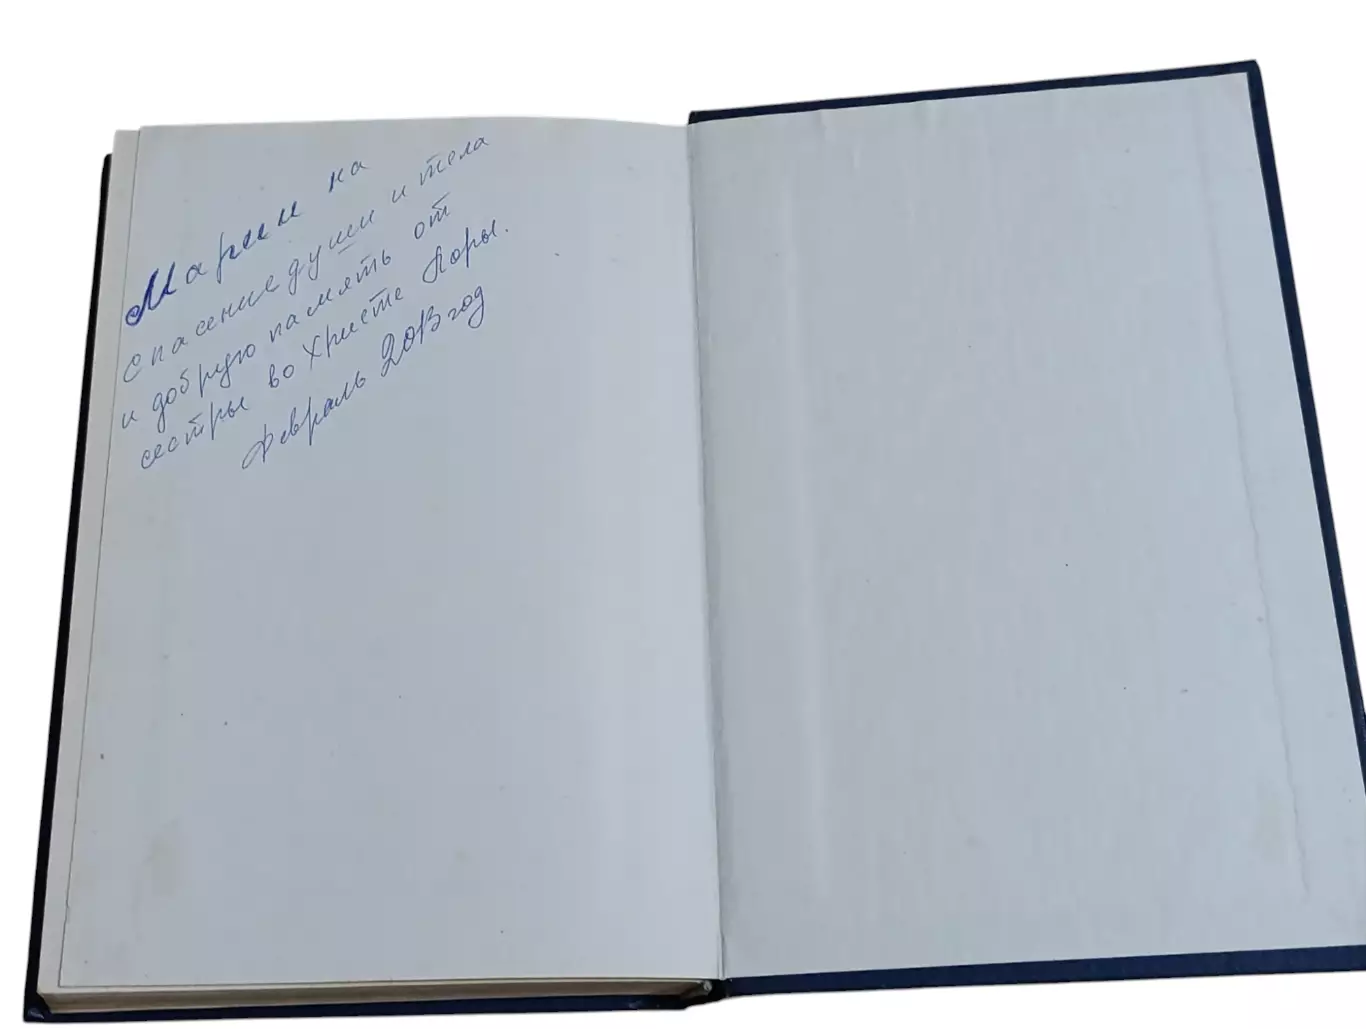 Марии на
спасение души и тела
и добрую память от
сестры во Христе Лоры.
февраль 2013 год